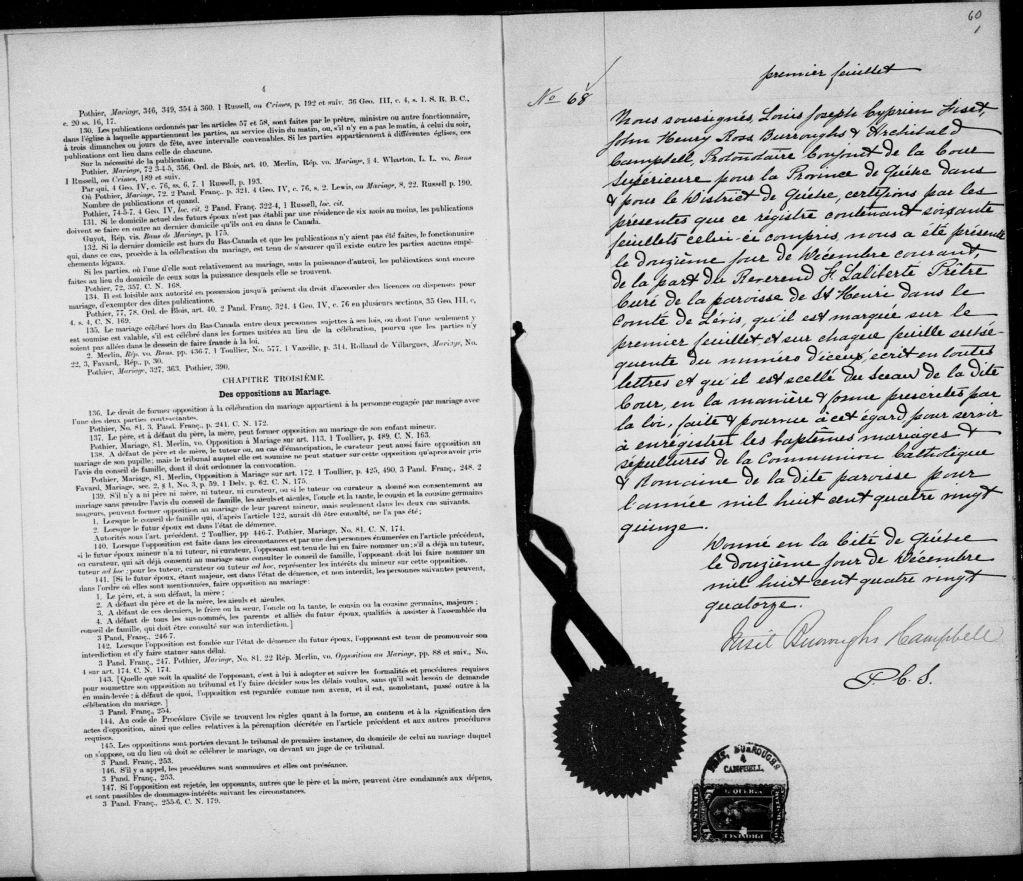 4
Pothier, Mariage, 346, 349, 354 à 360. 1 Russell, on Crimes, p. 192 et suiv. 36 Geo. III, c. 4, s. 1. S. R. B. C.,
c. 20 ss. 16, 17.
130. Les publications ordonnées par les articles 57 et 58, sont faites par le prêtre, ministre ou autre fonctionnaire,
dans l'église à laquelle appartiennent les parties, au service divin du matin, ou, s'il n'y en a pas le matin, à celui du soir,
à trois dimanches ou jours de fête, avec intervalle convenables. Si les parties appartiennent à différentes églises, ces
publications ont lieu dans celle de chacune.
Sur la nécessité de la publication.
Pothier, Mariage, 72 3-4-5, 356. Ord. de Blois, art. 40. Merlin, Rép. vo. Mariage, § 4. Wharton, L. L. vo. Bans
1 Russell, on Crimes, 189 et suiv.
Par qui, 4 Geo. IV, c. 76, ss. 6, 7. 1 Russell, p. 193.
Où Pothier, Mariage, 72. 2 Pand. Franç.. p. 321. 4 Geo. IV, c. 76, s. 2. Lewis, on Mariage, 8, 22. Russell p. 190.
Nombre de publications et quand.
Pothier, 74-5-7. 4 Geo. IV, loc. cit. 2 Pand. Franç. 322-4, 1 Russell, loc. cit.
131. Si le domicile actuel des futurs époux n'est pas établi par une résidence de six mois au moins, les publications
doivent se faire en outre au dernier domicile qu'ils ont eu dans le Canada.
Guyot, Rép. vis. Bans de Mariage, p. 175.
132. Si la dernier domicile est hors du Bas-Canada et que les publications n'y aient pas été faites, le fonctionnaire
qui, dans ce cas, procède à la célébration du mariage, est tenu de s'assurer qu'il existe entre les parties aucuns empê-
chements légaux.
Si les parties, où l'une d'elle sont relativement au mariage, sous la puissance-d'autrui, les publications sont encore
faites au lieu du domicile de ceux sous la puissance desquels elle se trouvent.
Pothier, 72, 357. C. N. 168.
134. Il est loisible aux autorité en possession jusqu'à présent du droit d'accorder des licences ou dispenses pour
mariage, d'exempter des dites publications.
Pothier, 77, 78. Ord. de Blois, art. 40. 2 Pand. Franç., 324. 4 Geo. IV, c. 76 en plusieurs sections, 35 Geo. III, c,
4, s. 4, C. N. 169.
135. Le mariage célébré hors du Bas-Canada entre deux personnes sujettes à ses lois, ou dont l'une seulement y
est soumise est valable, s'il est célébré dans les formes usitées au lieu de la célébration, pourvu que les parties n'y
soient pas allées dans le dessein de faire fraude à la loi.
2. Merlin, Rép. vo. Bans, pp. 436-7. 1 Toullier, No. 577. 1 Vazeille, p. 314. Rolland de Villargues, Mariage, No.
22, 3, Favard, Rép., p. 30.
Pothier, Mariage, 327, 363. Pothier, 390.
CHAPITRE TROISIÈME.
Des oppositions au Mariage.
136. Le droit de former opposition à la célébration du mariage appartient à la personne engagée par mariage avec
l'une des deux parties contractantes.
Pothier, No. 81. 3. Pand. Franç., p. 241. C. N. 172.
137. Le père, et à défaut du père, la mère, peut former opposition au mariage de son enfant mineur.
Pothier, Mariage, 81. Merlin, vo. Opposition à Mariage sur art. 113. 1 Toullier, p. 489. C. N. 163.
138. A défaut de père et de mère, le tuteur ou, au cas d'émancipation, le curateur peut aussi faire opposition au
mariage de son pupille; mais le tribunal auquel elle est soumise ne peut statuer sur cette opposition qu'après avoir pris
l'avis du conseil de famille, dont il doit ordonner la convocation.
Pothier, Mariage, 81. Merlin, Opposition à Mariage sur art. 172. 1 Toullier, p. 425, 490, 3 Pand. Franç., 248. 2
Favard, Mariage, sec. 2, § 1, No. 3, p. 59. 1 Delv. p. 62. C. N. 175.
139. S'il n'y a ni père ni mère, ni tuteur, ni curateur, ou si le tuteur ou curateur a donné son consentement au
mariage sans prendre l'avis du conseil de famille, les aieuls et aieules, l'oncle et la tante, le cousin et la cousine germains
majeurs, peuvent former opposition au mariage de leur parent mineur, mais seulement dans les deux cas suivants.
1. Lorsque le conseil de famille qui, d'après l'article 122, aurait dû être consulté, ne l'a pas été;
2. Lorsque le futur époux est dans l'état de démence.
Autorités sous l'art. précédent. 2 Toullier, pp 446-7. Pothier, Mariage, No. 81, C. N. 174.
140. Lorsque l'opposition est faite dans les circonstances et par une des personnes énumérées en l'article précédent,
si le futur époux mineur n'a ni tuteur, ni curateur, l'opposant est tenu de lui en faire nommer un; s'il a déjà un tuteur,
ou curateur, qui ait déjà consenti au mariage sans consulter le conseil de famille, l'opposant doit lui faire nommer un
tuteur ad hoc; pour les tuteur, curateur ou tuteur ad hoc, représenter les intérêts du mineur sur cette opposition.
141. [Si le futur époux, étant majeur, est dans l'état de démence, et non interdit, les personnes suivantes peuvent,
dans l'ordre où elles sont mentionnées, faire opposition au mariage:
1. Le père, et, à son défaut, la mère;
2. A défaut du père et de la mère, les aieuls et aieules.
3. A défaut de ces derniers, le frère ou la sœur, l'oncle ou la tante, le cousin ou la cousine germains, majeurs;
4. A défaut de tous les sus-nommés, les parents et alliés du futur époux, qualifiés à assister à l'assemblée du
conseil de famille, qui doit être consulté sur son interdiction.]
3 Pand. Franç., 246-7.
142. Lorsque l'opposition est fondée sur l'état de démence du futur époux, l'opposant est tenu de promouvoir son
interdiction et d'y faire statuer sans délai.
3 Pand. Franç., 247. Pothier, Mariage, No. 81. 22 Rép. Merlin, vo. Opposition au Mariage, pp. 88 et suiv., No.
4 sur art. 174. C. N. 174.
143. [Quelle que soit la qualité de l'opposant, c'est à lui à adopter et suivre les formalités et procédures requises
pour soumettre son opposition au tribunal et l'y faire décider sous les délais voulus, sans qu'il soit besoin de demande
en main-levée; à défaut de quoi, l'opposition est regardée comme non avenu, et il est, nonobstant, passé outre à la
célébration du mariage.]
3 Pand. Franç., 254.
144. Au code de Procédure Civile se trouvent les règles quant à la forme, au contenu et à la signification des
actes d'opposition, ainsi que celles relatives à la péremption décrétée en l'article précédent et aux autres procédures
requises.
145. Les oppositions sont portées devant le tribunal de première instance, du domicile de celui au mariage duquel
on s'oppose, ou du lieu où doit se célébrer le mariage, ou devant un juge de ce tribunal.
3 Pand. Franç., 253.
146. S'il y a appel, les procédures sont sommaires et elles ont préséance.
3 Pand. Franç., 253.
147. Si l'opposition est rejetée, les opposants, autres que le père et la mère, peuvent être condamnés aux dépens,
et sont passibles de dommages-intérêts suivant les circonstances.
3 Pand. Franç., 255-6. C. N. 179.
60
1
premier feuillet
No 68
Nous soussignés, Louis Joseph Cyprien Fiset,
John Henry Ross Burroughs & Archibald
Campbell, Protonotaire Conjoint de la Cour
Supérieure pour la Province de Québec dans
& pour le District de Québec, certifions par les
présentes que ce registre contenant soixante
feuillets celui-ci compris, nous a été présenté
le douzième jour de Décembre courant,
de la part du Reverend F. Laliberté Prêtre
Curé de la paroisse de St Henri dans le
Comté de Lévis, qu'il est marqué sur le
premier feuillet et sur chaque feuille subsé-
quente du numéro d'iceux, écrit en toutes
lettres et qu'il est scellé du Sceau de la dite
Cour, en la manière & forme prescrites par
la loi, faite & pourvue à cet égard, pour servir
à enregistrer les baptêmes mariages &
sépultures de la Communion Catholique
& Romaine de la dite paroisse pour
l'année mil huit cent quatre vingt
quinze.
Donné en la Cité de Québec
le douzième jour de Décembre
mil huit cent quatre vingt
quatorze.
Fiset Burroughs & Campbell
P. C. S.
FISET, BURROUGHS
&
CAMPBELL.
QUEBEC
LAW STAMP
ONE DOLLAR
PROVINCE